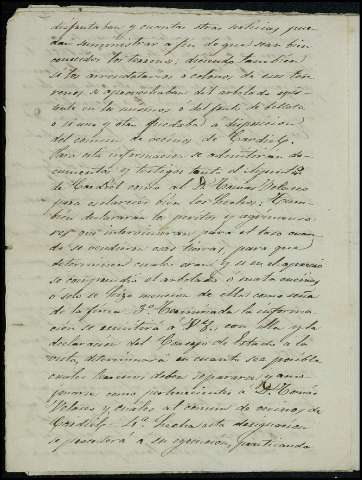 disfrutaban y cuantas otras noticias pue-
dan suministrar a fin de que sean bien
conocidos los terrenos; diciendo tambien
si los arrendatarios o colonos de esos ter-
renos se aprovechaban del arbolado
ente en los mismos o del fruto de bellota
o si uno y otro quedaba a disposicion
del comun de vecinos de Cardiel
Para esta informacion se admitiran do-
cumentos y testigos tanto al Ayuntto.
de Cardiel como al D. Tomas Velasco
para esclarecer bien los hechos. Tam-
bien declararan los peritos y agrimenso-
res que intervinieron para el tasa cuan-
do se vendieron esas tierras, para que
determinen cuales eran y si en el aprecio
se comprendió el arbolado o mata encinas
o solo se hizo mencion de ellas como seña
de la finca 3.º Terminada la informa-
cion se remitirá a V.S. con ella y la
declaracion del Consejo de Estado a la
vista, determinará en cuanto sea posible
cuales terrenos deben separarse y amo-
jonarse como pertenecientes a D. Tomas
Velasco, y cuales al comun de vecinos de
Cardiel 4.ª hecha esta designacion
se procederá a su ejecucion, practicando